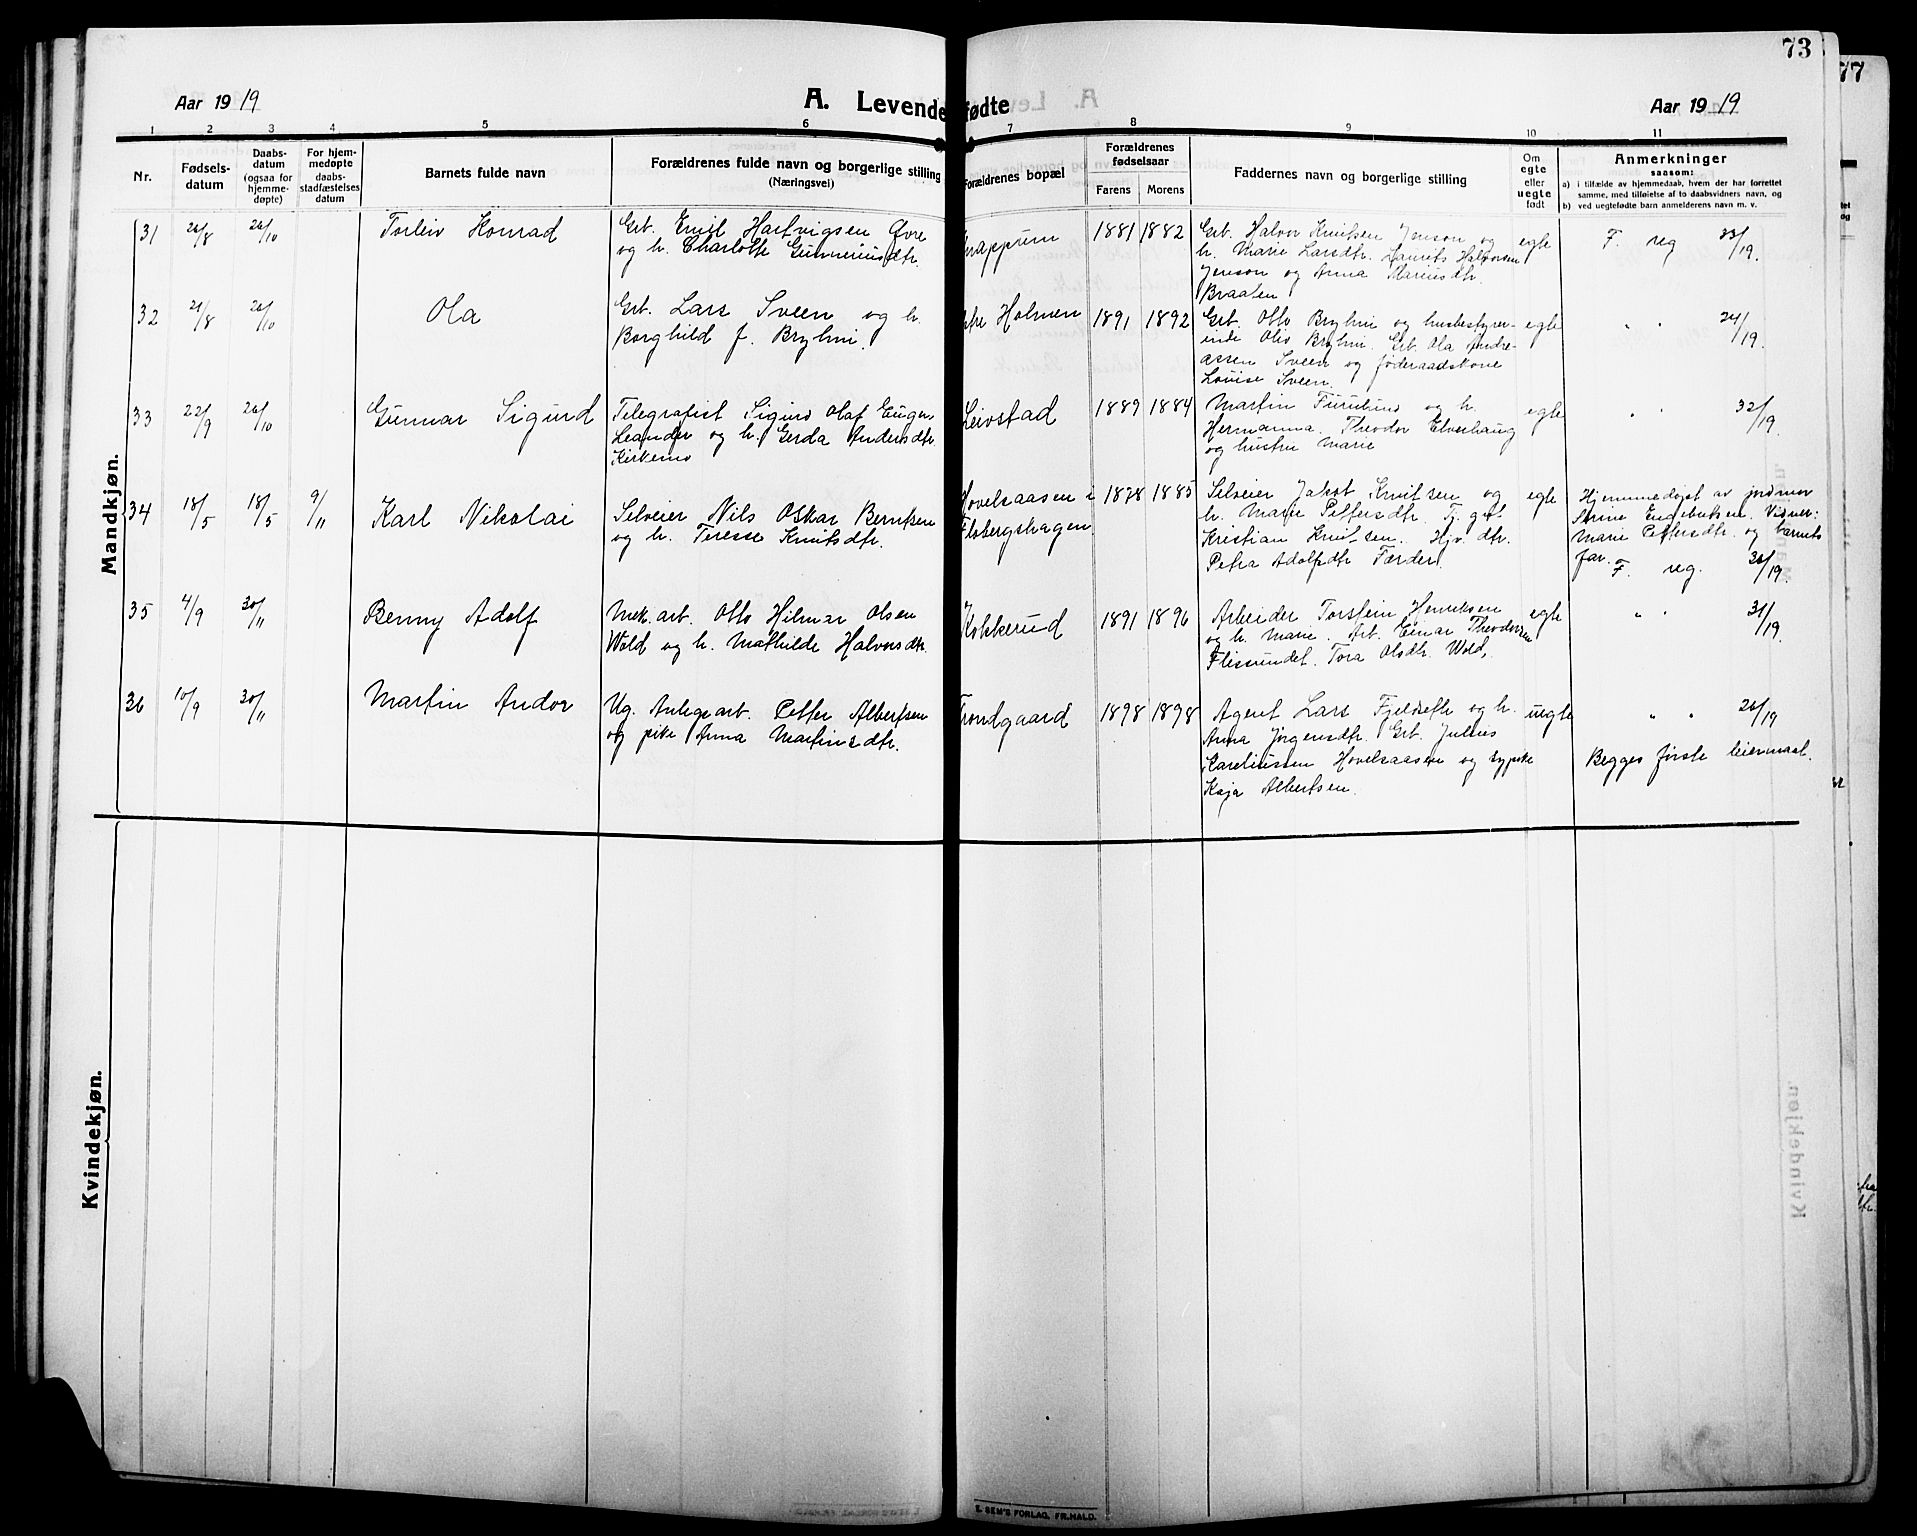 73
77
Aar 1919
A. Levendefødte
Aar 1919
1 2 3 4 5 6 7 8 9 10 11
Nr.
Fødsels-
datum
Daabs-
datum
(ogsaa for
hjemme-
døpte)
For hjem-
medøpte
daabs-
stadfæstelses
datum
Barnets fulde navn
Forældrenes fulde navn og borgerlige stilling
(Næringsvei)
Forældrenes bopæl
Forældrenes
fødselsaar
Farens Morens
Faddernes navn og borgerlige stilling
Om
egte
eller
uegte
født
Anmerkninger
saasom:
a) i tilfælde av hjemmedaab, hvem der har forrettet
samme, med tilføielse af to daabsvidners navn, og
b) ved uegtefødte barn anmelderens navn m. v.
Mandkjøn.
31 26/8 26/10 Torleiv Konrad
Grb. Emil Hartvigsen Øvre
og h. Charlotte Gunneriusdtr.
1881 1882
Grb. Halvor Knutsen Jenson og
h. Marie Larsdtr. Laurits Halvorsen
Jenson og Anna Mariusdtr.
Braaten
egte
F. reg 33/19.
32 21/8 26/10 Ola
Grb. Lars Sveen og h.
Borghild f. Bryhni.
Holmen
1891 1892
Grb. Otto Bryhni og husbestyrer-
inde Olis Bryhni. Grb. Ola Andre-
assen Sveen og føderaadskone
Louise Sveen.
egte
" " 24/19.
33 22/9 26/10 Gunnar Sigurd
Telegrafist Sigurd Olaf Eugen
Leander og h. Gerda Andersdtr.
Kirkemo
Leivstad
1889 1884
Martin Furulund og h.
Hermanna. Theodor Elverhaug
og hustru Marie
egte
" " 32/19.
34 18/5 18/5 9/11 Karl Nikolai
Selveier Nils Oskar Berntsen
og h. Teresse Knutsdtr.
Hovelsaasen i
Flobergshagen
1878 1885
Selveier Jakob Knutsen og
h. Marie Pettersdtr. Tj. gut
Kristian Knutsen. Hjv. dtr.
Petra Adolfsdtr Førder.
egte
Hjemmedøpt av jordmor
Engebretsen. Vidner:
Marie Pettersdtr. og barnets
far.
F. reg. 30/19.
35 4/9 30/11 Benny Adolf
Mek. arb. Otto Hilmar Olsen
Wold og h. Mathilde Halvorsdtr.
Kokkerud
1891 1896
Arbeider Torstein Henriksen
og h. Marie. Arb. Einar Theodorsen
Flissundet. Tora Olsdtr. Wold,
egte
" " 31/19.
36 10/9 30/11 Martin Andor
Ug. Anlegsarb. Petter Albertsen
og pike Anna Martinsdtr.
Trondgaard
1898 1898
Agent Lars Fjeldseth og h.
Anna Jørgensdtr. Grb. Julius
Kareliussen Hovelsaasen og sypike
Kaja Albertsen.
uegte
" " 26/19
Begges første leiermaal.
Kvindekjøn.
E. SEM'S FORLAG, FR.HALD.